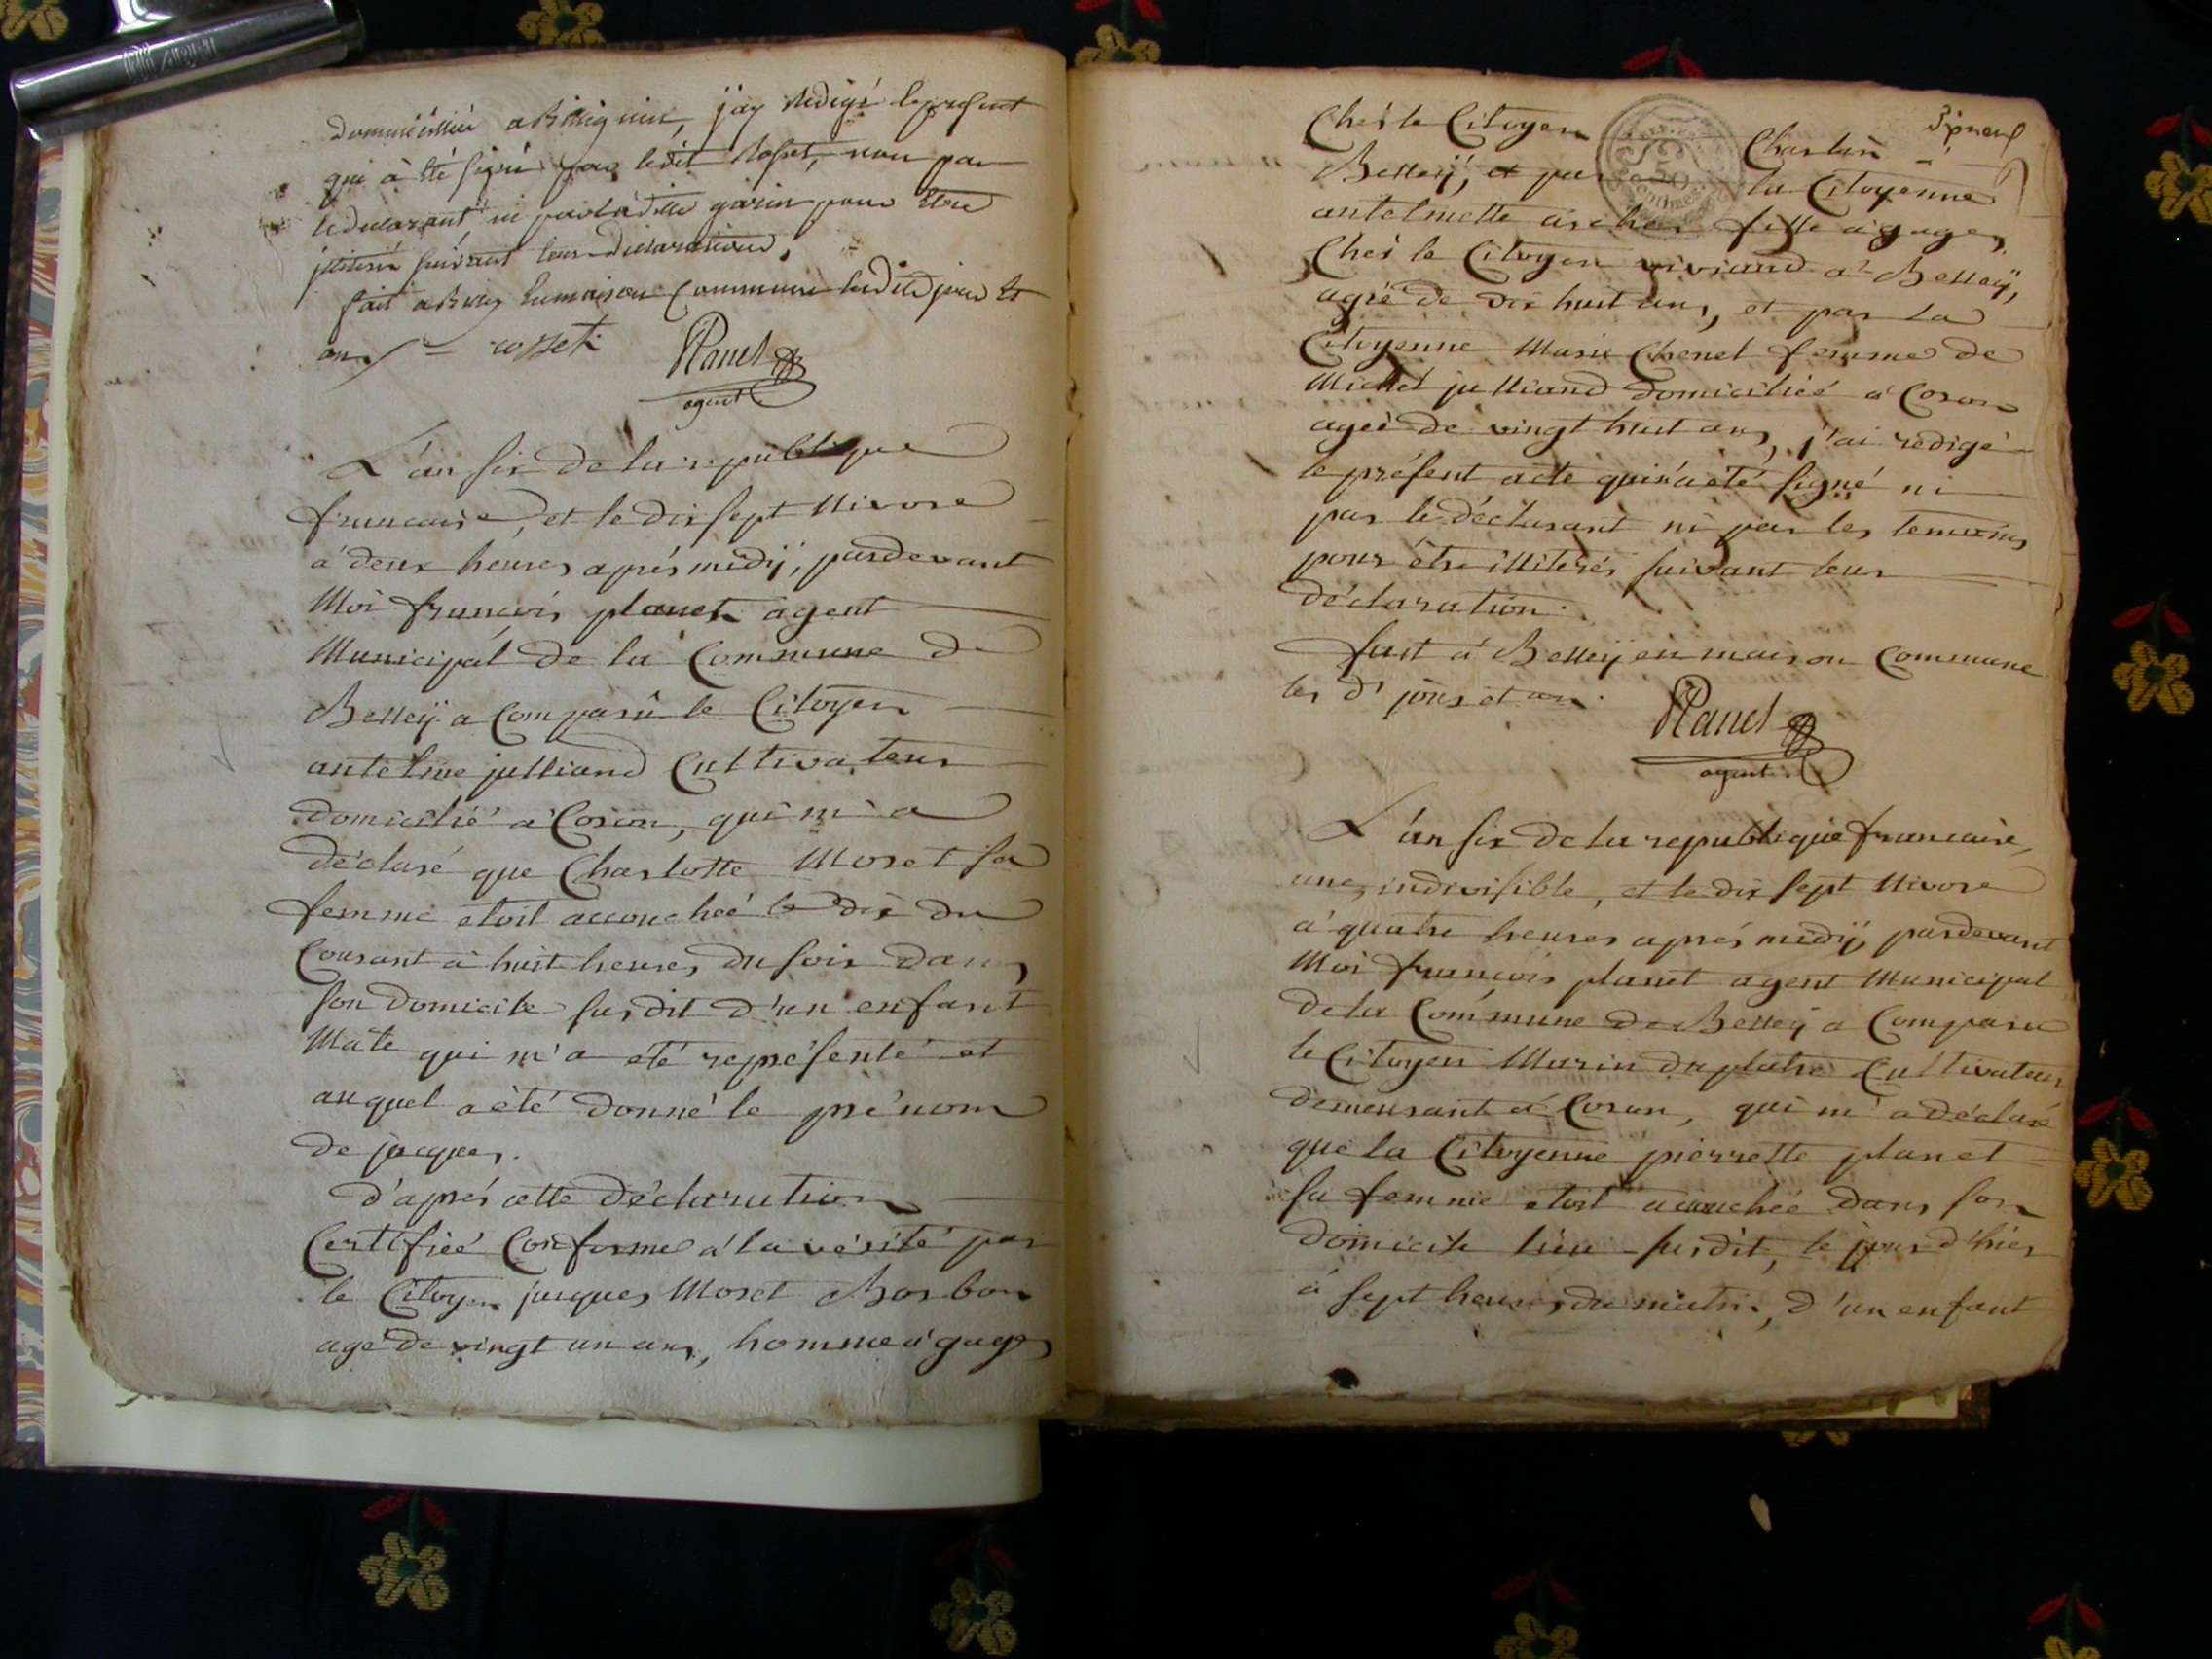 qui à été signé par ledit Rosset, non par
le declarant, ni par la ditte garin pour être
illitérés suivant leur declaration.
fait a Belley en maison Commune lesdits jour et
an rosset Planet
agent
L'an six de la republique
francaise, et le dix sept Nivose
à deux heures aprés midÿ, pardevant
Moi francois planet agent
Municipal de la Commune de
Belleÿ a Comparû le Citoyen
antelme julliand Cultivateur
domicilié a Coron, qui m'a
déclaré que Charlotte Moret sa
femme etoit accouchée le dix du
Courant à huit heures du soir dans
son domicile susdit d'un enfant
Mâle qui m'a été représenté et
auquel a été donné le prénom
de jacques.
d'aprés cette déclaration
Certifiée Conforme á la vérité par
le Citoyen jacques Moret Barbon
agé de vingt un ans, homme á gages
Chés le Citoyen Charlin á
Belleÿ, et par la Citoyenne
antelmette archer fille à gages
Chés le Citoyen viviand à Belleÿ,
agée de dix huit ans, et par la
Citoyenne Marie Chenel femme de
Michel julliand domiciliée á Coron
ageé de vingt huit ans, j'ai rédigé
le présent acte qui n'a été signé ni
par le déclarant ni par les temoins
pour être illiterés suivant leur
déclaration.
fait á Belleÿ en maison Commune
les d' jour et an.
Planet
agent
L'an six de la republique francaise,
une, indivisible, et le dix sept Nivose
á quatre heures aprés midÿ, pardevant
Moi francois planet agent Municipal
de la Commune de Belleÿ a Comparu
le Citoyen Marin duplatre Cultivateur
demeurant á Coron, qui m'a déclaré
que la Citoyenne pierrette planet
sa femme etoit acouchée dans son
domicile lieu susdit, le jour d'hier
á sept heures du matin, d'un enfant